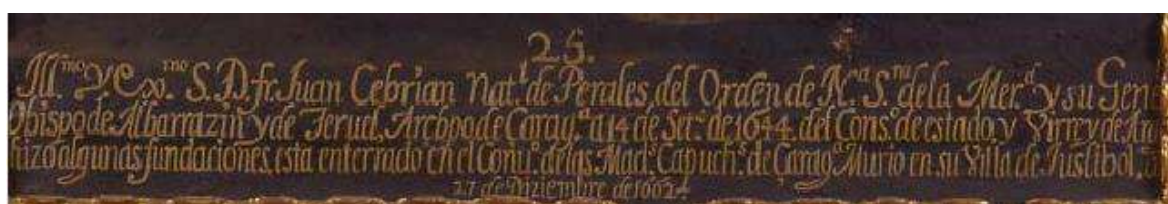 25.
Ill.mo Y. Exx.mo S. D. fr. Juan Cebrian Nat.l de Perales, del Orden de N.a S.ra de la Mer.d y su Gen
Obispo de Albarrazin y de Teruel, Arcbpo de Çarag.a a 14 de Set.e de 1644. del Cons.o de estado, y Virrey de
hizo algunas fundaciones, esta enterrado en el Conv.o de las Mad.s Capuch.s de Çarag.a Murio en su Villa de Juslibol,
27 de Diziembre de 1662.